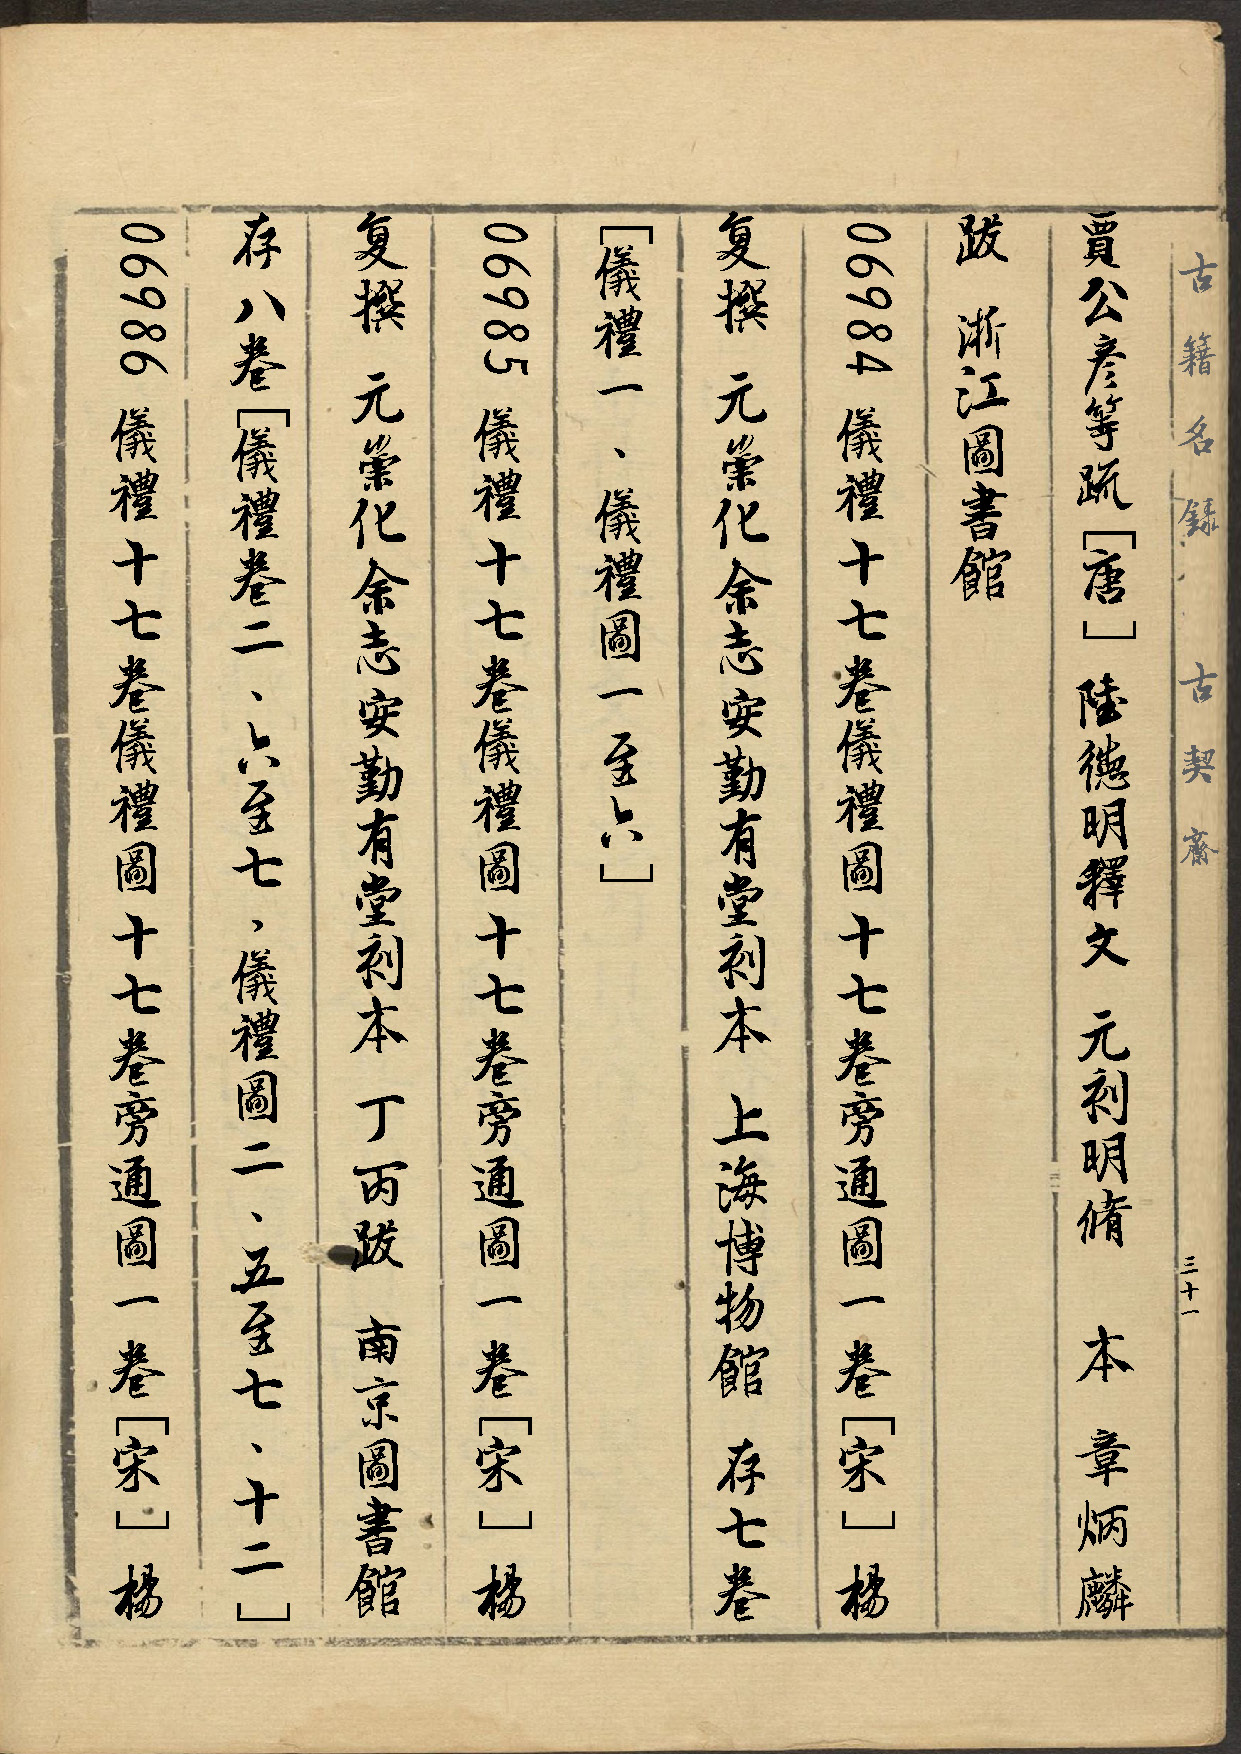 古籍名録 古契齋 三十一
賈公彥等疏［唐］ 陸德明釋文 元刻明脩 本 章炳麟
跋 浙江圖書館
06984 儀禮十七卷儀禮圖十七卷旁通圖一卷［宋］楊
复撰 元崇化余志安勤有堂刻本 上海博物館 存七卷
［儀禮一、儀禮圖一至六］
06985 儀禮十七卷儀禮圖十七卷旁通圖一卷［宋］楊
复撰 元崇化余志安勤有堂刻本 丁丙跋 南京圖書館
存八卷［儀禮卷二、六至七，儀禮圖二、五至七、十二］
06986 儀禮十七卷儀禮圖十七卷旁通圖一卷［宋］楊